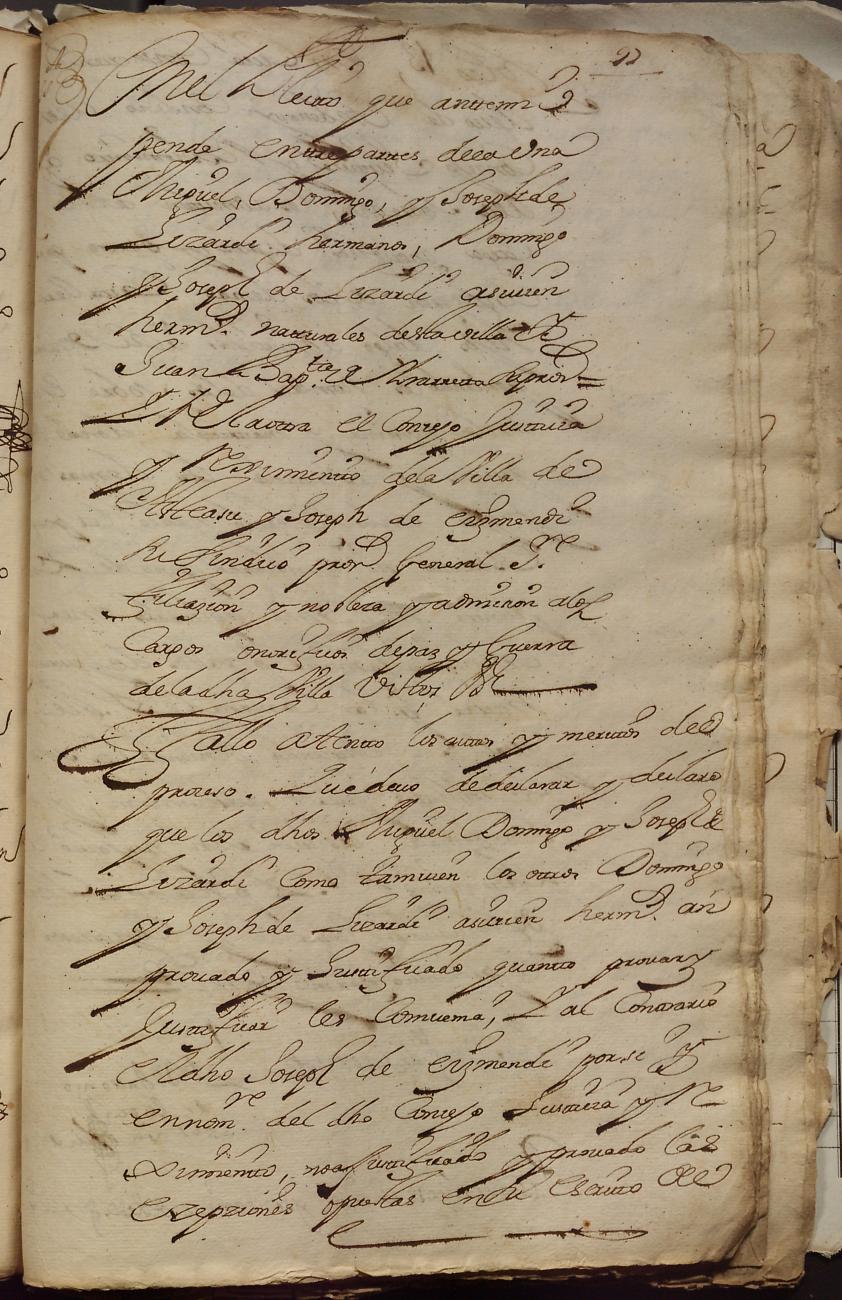 92
En el Pleito que antemi
pende entre partes dela Una
Miguel, Domingo, y Joseph de
Lizardi hermanos, Domingo
y Joseph de Lizardi asiuien
herm.s naturales desta villa
Juan Bap.ta de Yrarreta Su pror =
Y de la otra el Conzejo Justizia
y reximiento dela Villa de
Joseph de Eizmendi
su sindico pror General S.re
filiazion y nobleza y admision alos
Cargos onorificos de paz y Guerra
dela dha Villa Vistos &
Fallo atento los autos y meritos del
proceso. Que deuo de declarar y declaro
que los dhos Miguel Domingo y Joseph de
Lizardi como tamuien los otros Domingo
y Joseph de Lizardi asiuien herm.s an
prouado y Justificado quanto prouar y
Justificar les Comuenia, Y al Contrario
el dho Joseph de Eizmendi por si y
en nom.re del dho Conzejo Justizia y Re
ximiento, no a Justificado y prouado las
exepziones opuestas en su escrito de